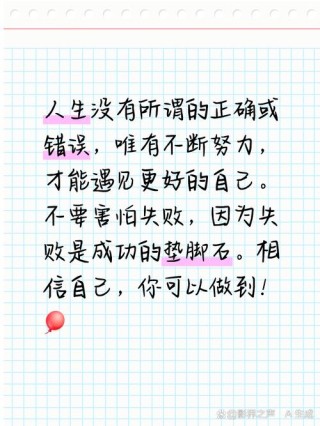 人生没有所谓的正确或
错误，唯有不断努力，
才能遇见更好的自己。
不要害怕失败，因为失
败是成功的垫脚石。相
信自己，你可以做到！